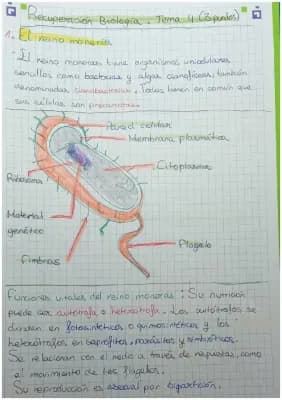 Recuperación Biología. Tema 4 (3 puntos)
1. El reino moneras
- El reino moneras tiene organismos unicelulares
sencillos como bacterias y algas cianofíceas, también
denominadas cianobacterias. Todas tienen en común que
sus células son procariotas.
Pared celular
Membrana plasmática
Citoplasma
Ribosoma
Material
genético
Fimbrias
Flagelo
Funciones vitales del reino moneras: Su nutrición
puede ser autótrofa o heterótrofa. Los autótrofos se
dividen en fotosintéticos o quimiosintéticos y los
heterótrofos en saprófitos, parásitos y simbióticos.
Se relacionan con el medio a través de respuestas, como
el movimiento de los flagelos.
Su reproducción es asexual por bipartición.